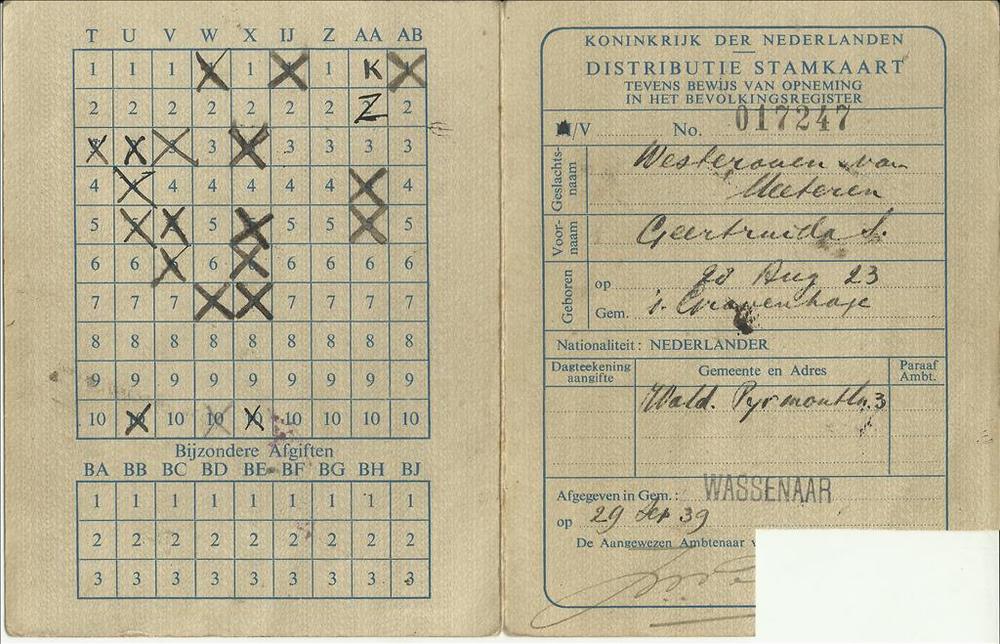 T U V W X IJ Z AA AB
1 1 1 1 K
2 2 2 2 2 2 2 Z 2
3 3 3 3 3
4 4 4 4 4 4 4
5 5 5 5 5
6 6 6 6 6 6 6
7 7 7 7 7 7 7
8 8 8 8 8 8 8 8 8
9 9 9 9 9 9 9 9 9
10 10 10 10 10 10 10 10 10
Bijzondere Afgiften
BA BB BC BD BE BF BG BH BJ
1 1 1 1 1 1 1 1 1
2 2 2 2 2 2 2 2 2
3 3 3 3 3 3 3 3 3
KONINKRIJK DER NEDERLANDEN
DISTRIBUTIE STAMKAART
TEVENS BEWIJS VAN OPNEMING
IN HET BEVOLKINGSREGISTER
/V No. 017247
Geslachts-
naam
Westerouen van
Meeteren
Voor-
naam
Geertruida S.
Geboren
op 28 Aug 23
Gem. 's Gravenhage
Nationaliteit: NEDERLANDER
Dagteekening
aangifte
Gemeente en Adres
Paraaf
Ambt.
Wald. Pyrmontln. 3
Afgegeven in Gem.: WASSENAAR
op 29 Sep 39
De Aangewezen Ambtenaar v